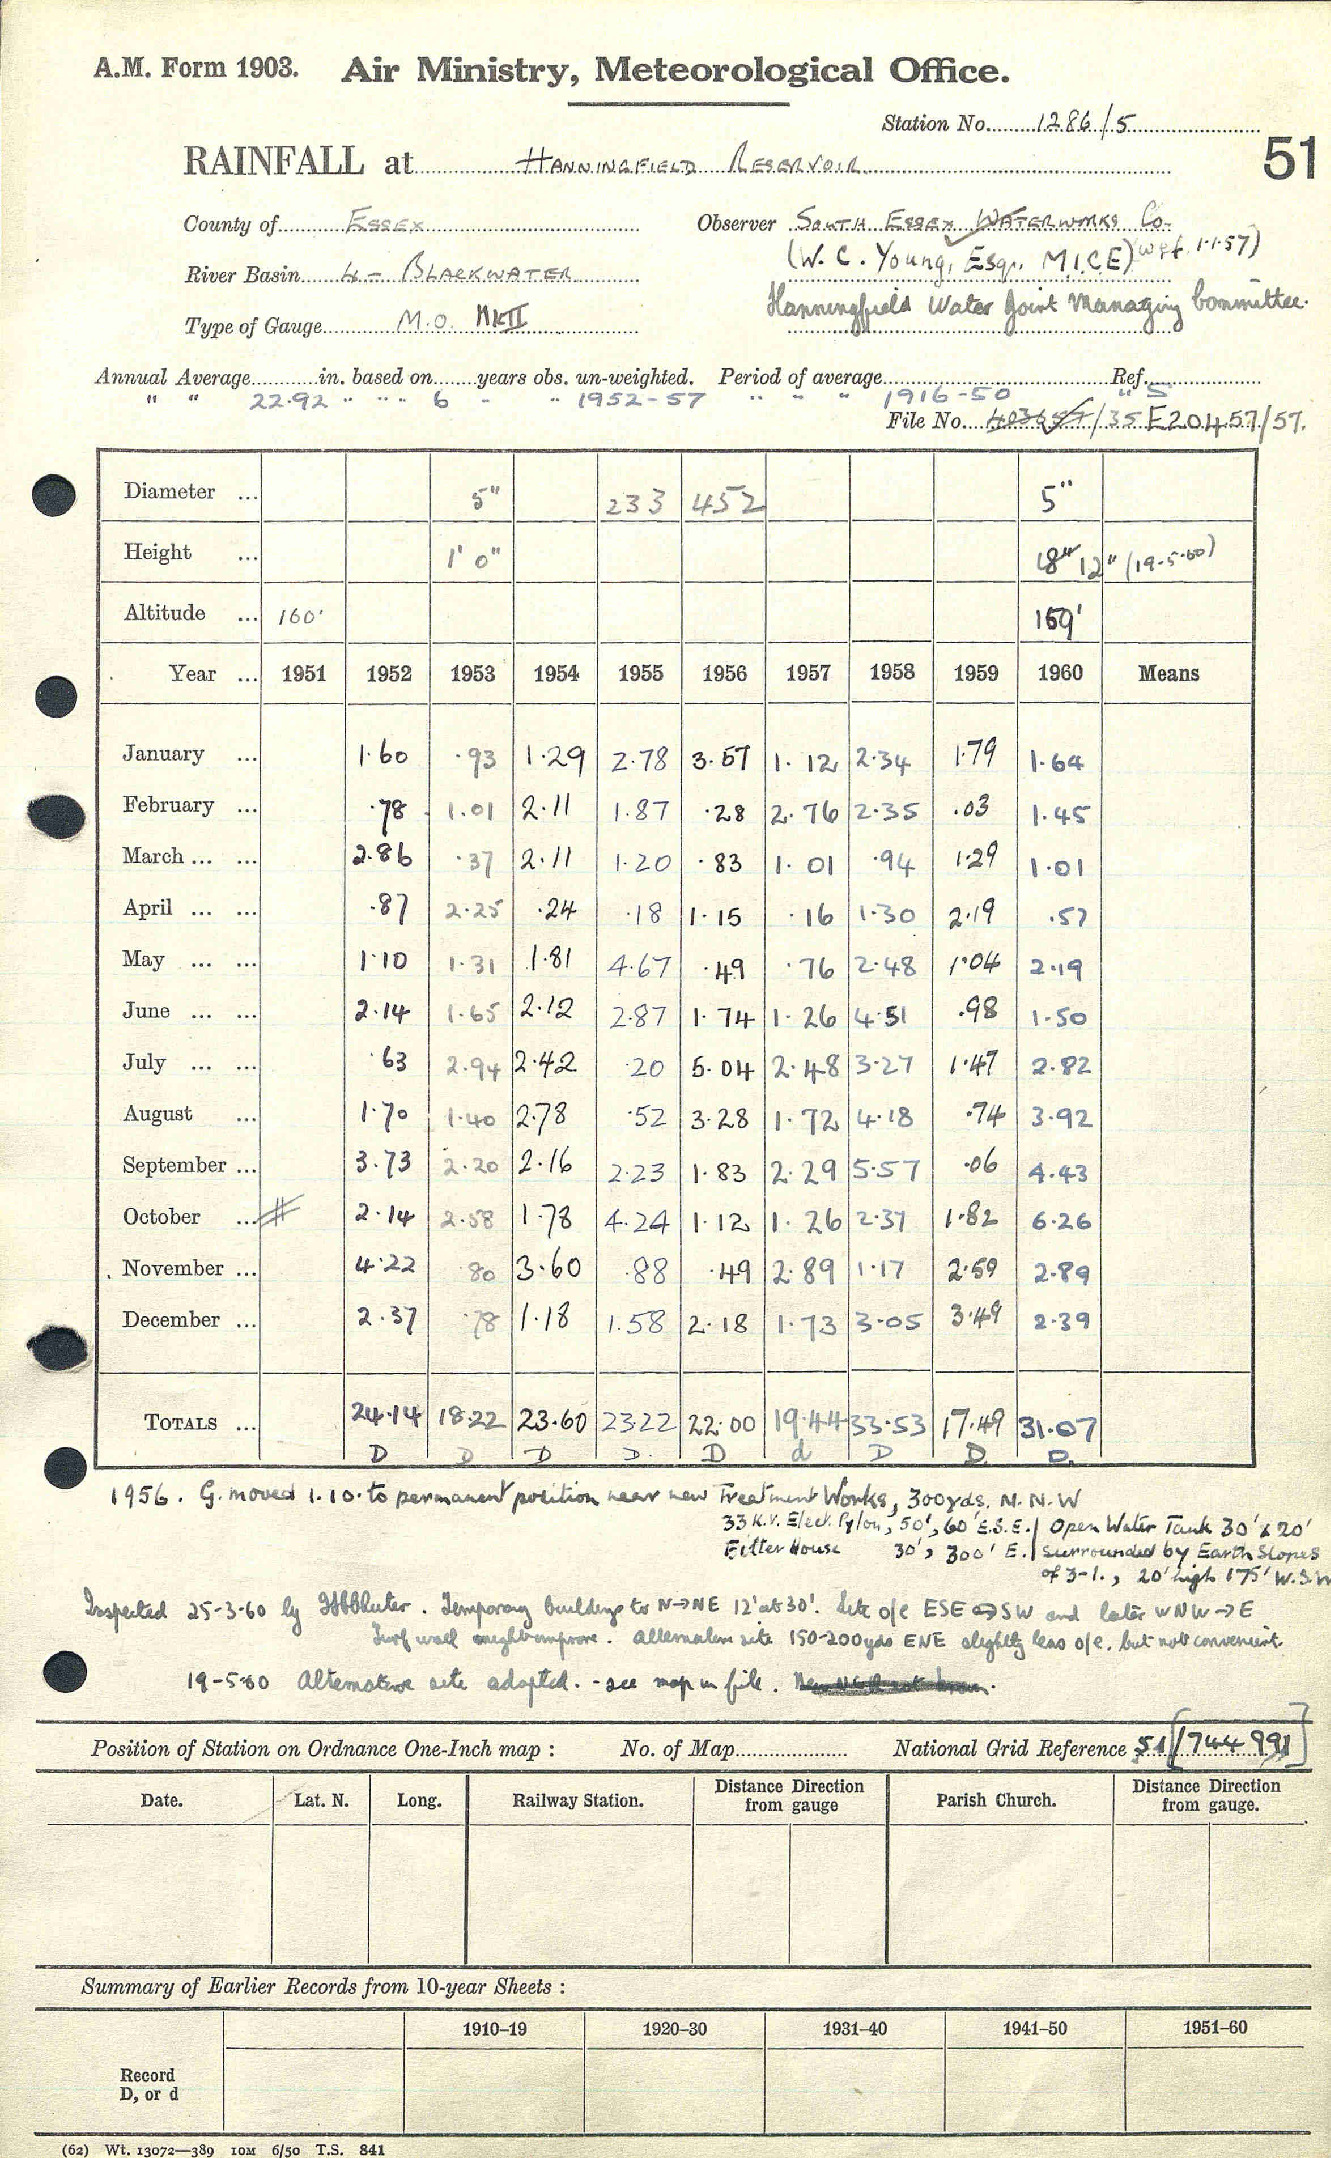 A.M. Form 1903. Air Ministry, Meteorological Office.
Station No. 1286/5
51
RAINFALL at HANNINGFIELD RESERVOIR
County of ESSEX Observer SOUTH ESSEX WATERWORKS Co.
(W. C. Young, Esq., M.I.C.E) (wef 1.1.57)
River Basin 4 - BLACKWATER
Hanningfield Water Joint Managing Committee.
Type of Gauge M.O. MkII
Annual Average in. based on years obs. un-weighted. Period of average Ref.
" " 22.92 " " " 6 " " 1952-57 " " " 1916-50 " 5
File No. /35 E20457/57.
Diameter ... 5" 233 452 5"
Height ... 1' 0" 18" 12" (19-5-60)
Altitude ... 160' 159'
Year ... 1951 1952 1953 1954 1955 1956 1957 1958 1959 1960 Means
January ... 1.60 .93 1.29 2.78 3.57 1.12 2.34 1.79 1.64
February ... .78 1.01 2.11 1.87 .28 2.76 2.35 .03 1.45
March ... ... 2.86 .37 2.11 1.20 .83 1.01 .94 1.29 1.01
April ... ... .87 2.25 .24 .18 1.15 .16 1.30 2.19 .57
May ... ... 1.10 1.31 1.81 4.67 .49 .76 2.48 1.04 2.19
June ... ... 2.14 1.65 2.12 2.87 1.74 1.26 4.51 .98 1.50
July ... ... .63 2.94 2.42 .20 5.04 2.48 3.27 1.47 2.82
August ... 1.70 1.40 2.78 .52 3.28 1.72 4.18 .74 3.92
September ... 3.73 2.20 2.16 2.23 1.83 2.29 5.57 .06 4.43
October ... 2.14 2.58 1.78 4.24 1.12 1.26 2.37 1.82 6.26
November ... 4.22 .80 3.60 .88 .49 2.89 1.17 2.59 2.89
December ... 2.37 .78 1.18 1.58 2.18 1.73 3.05 3.49 2.39
TOTALS ... 24.14 18.22 23.60 23.22 22.00 19.44 33.53 17.49 31.07
D D D D. D d D D D.
1956. G. moved 1.10. to permanent position near new Treatment Works, 300yds. N.N.W
33 K.V. Elect. Pylon, 50', 60' E.S.E. Open Water Tank 30' x 20'
Filter House 30', 300' E. surrounded by Earth Slopes
of 3-1., 20' high 175' W.S.W
Inspected 25-3-60 by. Temporary buildings to N→NE 12' at 30'. Site o/e ESE SW and later WNW→E
Turf wall might improve. Alternative site 150-200yds ENE slightly less o/e. but not convenient.
19-5-60 Alternative site adopted. - see map in file.
Position of Station on Ordnance One-Inch map : No. of Map National Grid Reference 51 [744 991]
Date. Lat. N. Long. Railway Station. Distance Direction from gauge Parish Church. Distance Direction from gauge.
Summary of Earlier Records from 10-year Sheets :
1910–19 1920–30 1931–40 1941–50 1951–60
Record
D, or d
(62) Wt. 13072—389 10M 6/50 T.S. 841